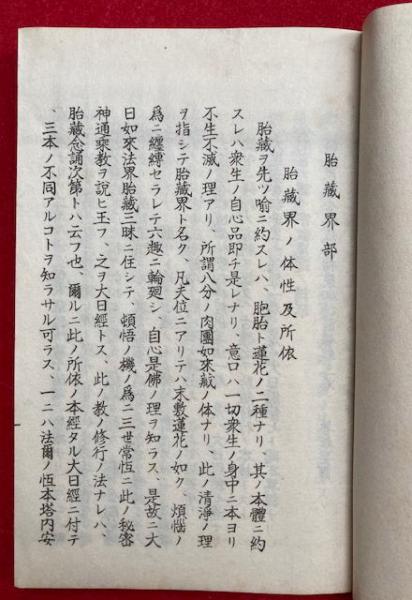 胎藏界部
胎藏界ノ体性及所依
胎藏ヲ先ツ喩ニ約スレハ、胞胎ト蓮花ノ二種ナリ、其ノ本體ニ約
スレハ衆生ノ自心品即チ是レナリ、意口ハ一切衆生ノ身中ニ本ヨリ
不生不滅ノ理アリ、所謂八分ノ肉團如來藏ノ体ナリ、此ノ清淨ノ理
ヲ指シテ胎藏界ト名ク、凡夫位ニアリテハ未敷蓮花ノ如ク、煩惱ノ
爲ニ纒縛セラレテ六趣ニ輪廻シ、自心是佛ノ理ヲ知ラス、是故ニ大
日如來法界胎藏三昧ニ住シテ、頓悟ノ機ノ爲ニ三世常恆ニ此ノ秘密
神通乘教ヲ説ヒ玉フ、之ヲ大日經トス、此ノ教ノ修行ノ法ナレハ、
胎藏念誦次第トハ云フ也、爾ルニ此ノ所依ノ本經タル大日經ニ付テ
、三本ノ不同アルコトヲ知ラサル可ラス、一ニハ法爾ノ恆本塔内安